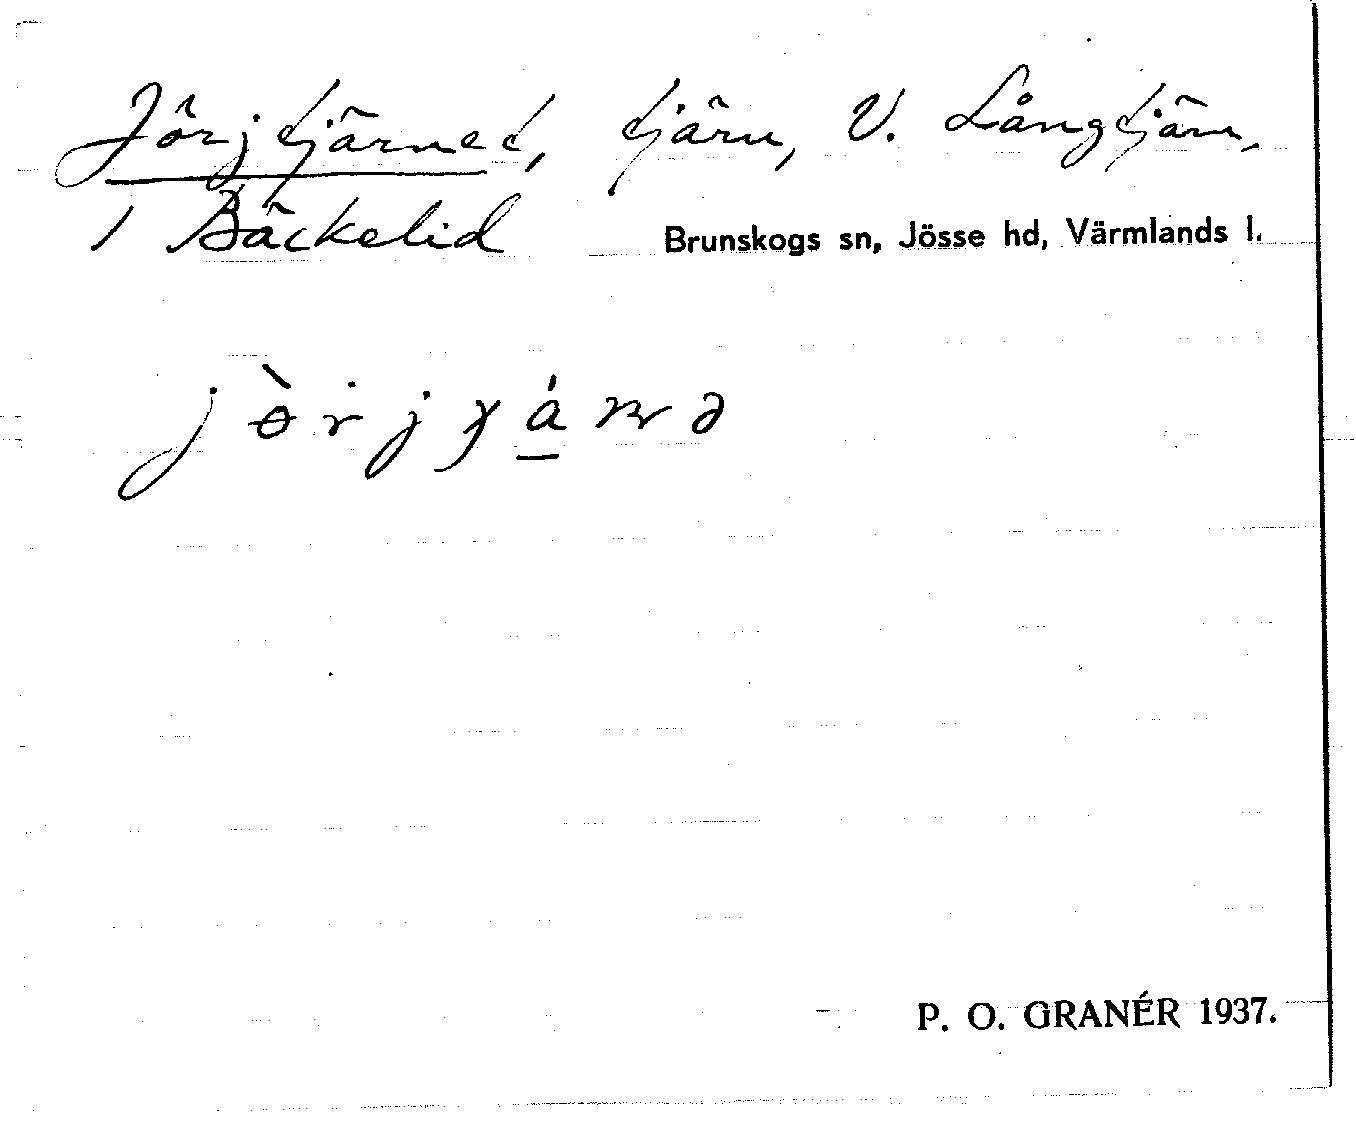 Jörjtjärnet, tjärn, V. Långtjärn,
1 Bäckelid Brunskogs sn, Jösse hd, Värmlands l.
P. O. GRANÉR 1937.